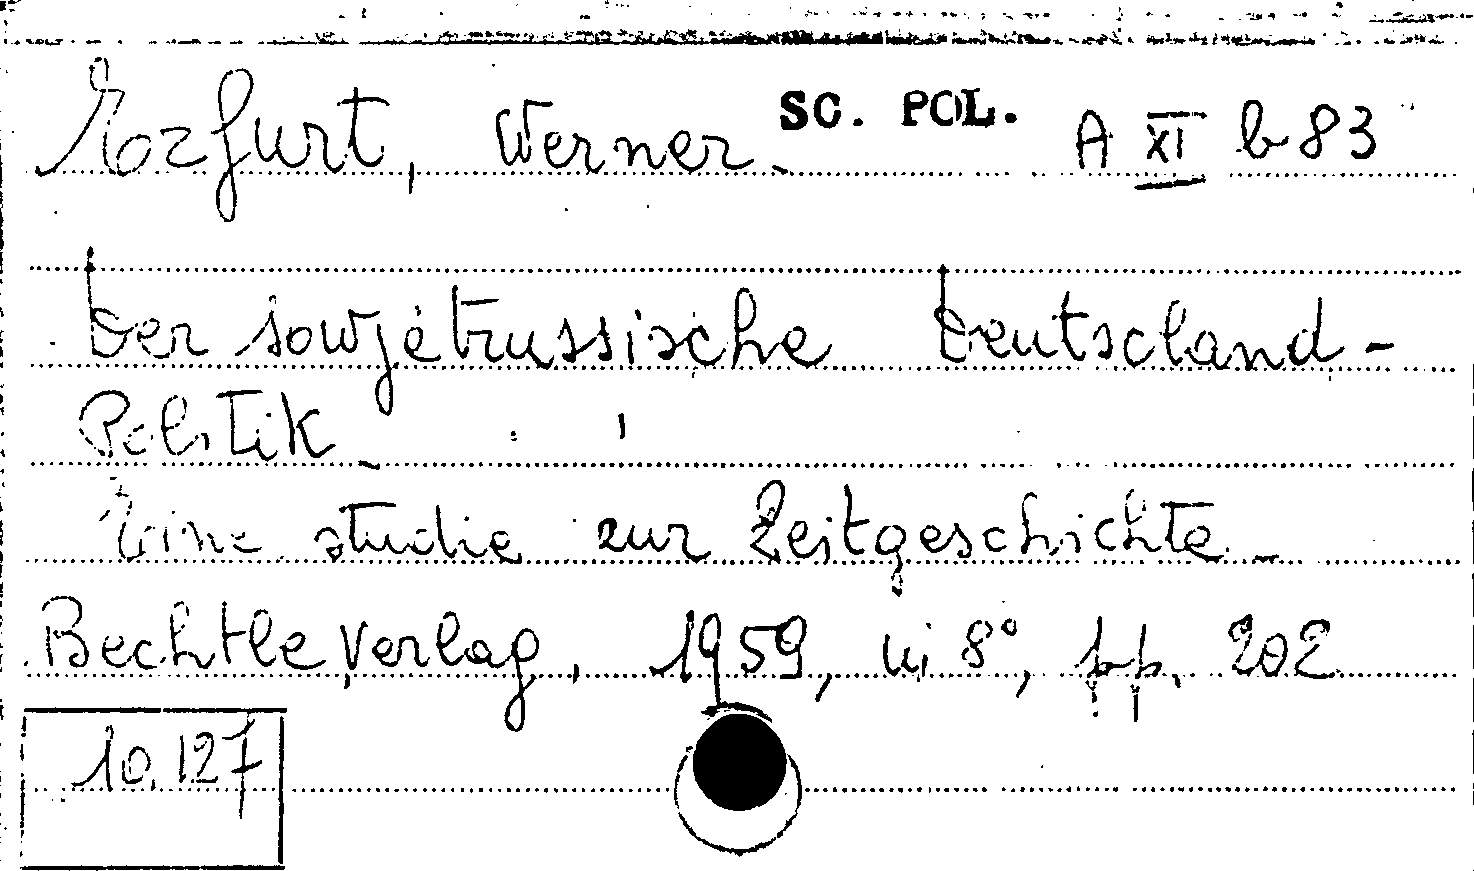 Erfurt, Werner. SC. POL. A XI b 83
Der sowjetrussische Deutscland-
Politik.
Eine studie zur Zeitgeschichte.
Bechtle Verlag, 1959, in 8°, pp. 202
10.127